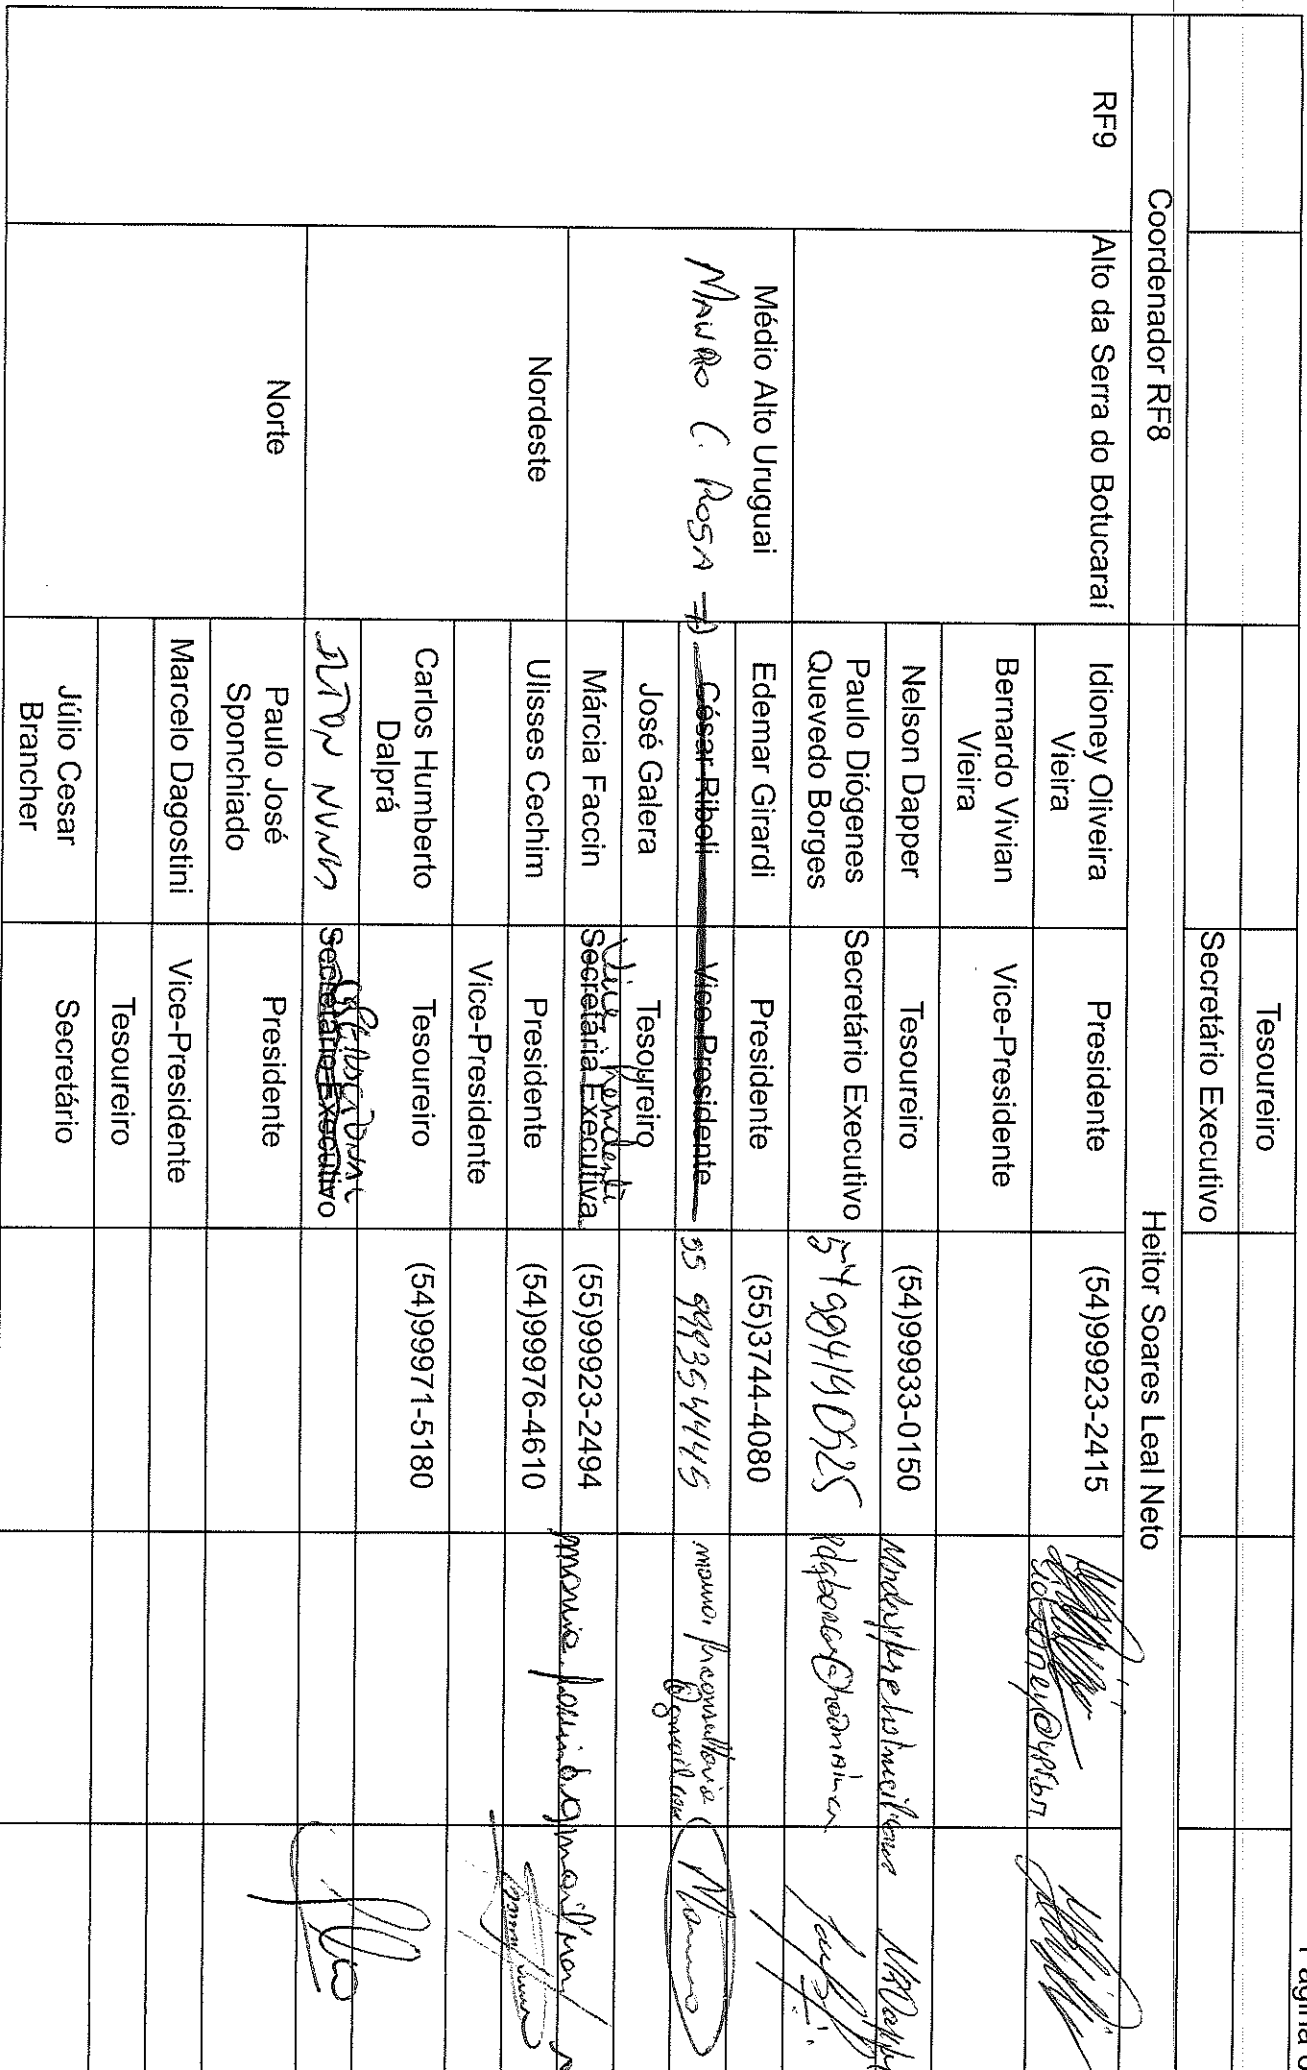 Tesoureiro
Secretário Executivo
Coordenador RF8 Heitor Soares Leal Neto
RF9 Alto da Serra do Botucaraí Idioney Oliveira Vieira Presidente (54)99923-2415
Bernardo Vivian Vieira Vice-Presidente
Nelson Dapper Tesoureiro (54)99933-0150
Paulo Diógenes Quevedo Borges Secretário Executivo
Médio Alto Uruguai Edemar Girardi Presidente (55)3744-4080
MAURO C. ROSA → César Riboli Vice-Presidente 55 999354445
José Galera Tesoureiro
Vice Presidente
Márcia Faccin Secretária Executiva (55)99923-2494
Nordeste Ulisses Cechim Presidente (54)99976-4610
Vice-Presidente
Carlos Humberto Dalprá Tesoureiro (54)99971-5180
ILTON NUNES Secretário Executivo
Norte Paulo José Sponchiado Presidente
Marcelo Dagostini Vice-Presidente
Tesoureiro
Júlio Cesar Brancher Secretário